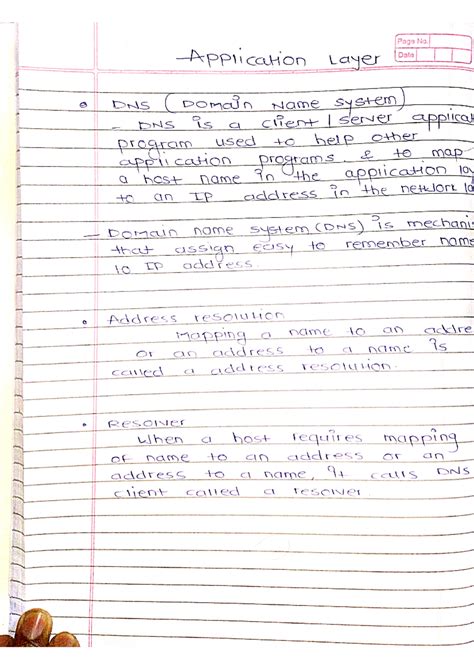 Page No.
Date
Application Layer
• DNS (Domain Name System)
- DNS is a client / server applicat
program used to help other
application programs & to map
a host name in the application la
to an IP address in the network la
- Domain name system (DNS) is mechani
that assign easy to remember name
to IP address.
• Address resolution
Mapping a name to an addre
or an address to a name is
called a address resolution.
• Resolver
When a host requires mapping
of name to an address or an
address to a name, it calls DNS
client called a resolver.